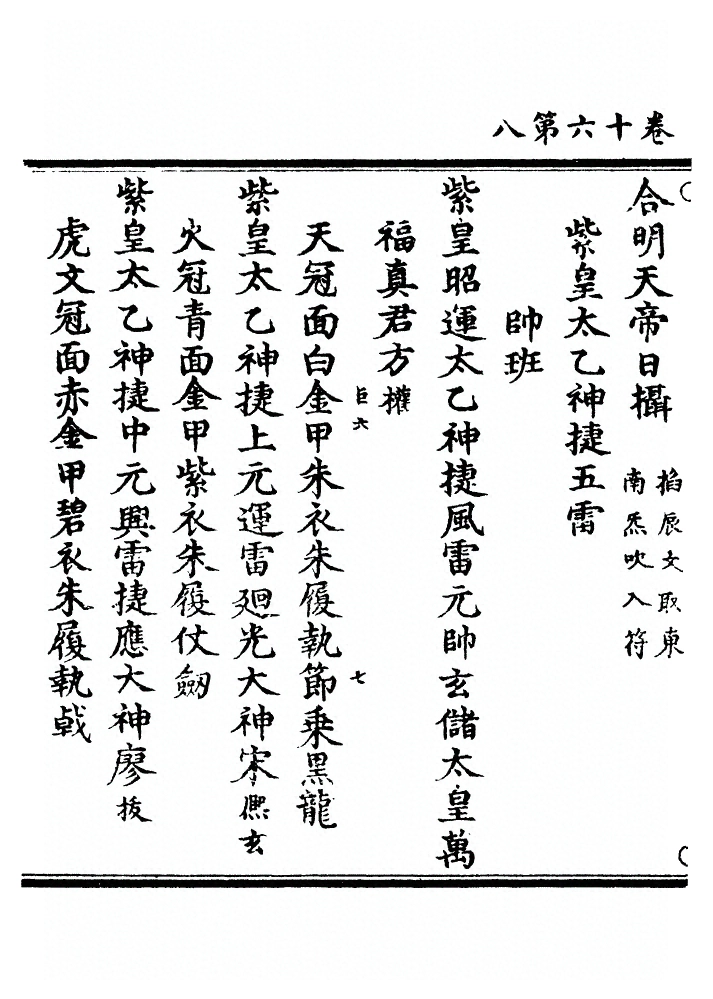 卷十六第八
合明天帝日攝 掐辰文取東
南炁吹入符
紫皇太乙神捷五雷
帥班
紫皇昭運太乙神捷風雷元帥玄儲太皇萬
福真君方權
天冠面白金甲朱衣朱履執節乗黒龍
巨六
七
紫皇太乙神捷上元運雷廻光大神宋熈玄
火冠青面金甲紫衣朱履仗劒
紫皇太乙神捷中元興雷捷應大神廖拔
虎文冠面赤金甲碧衣朱履執戟